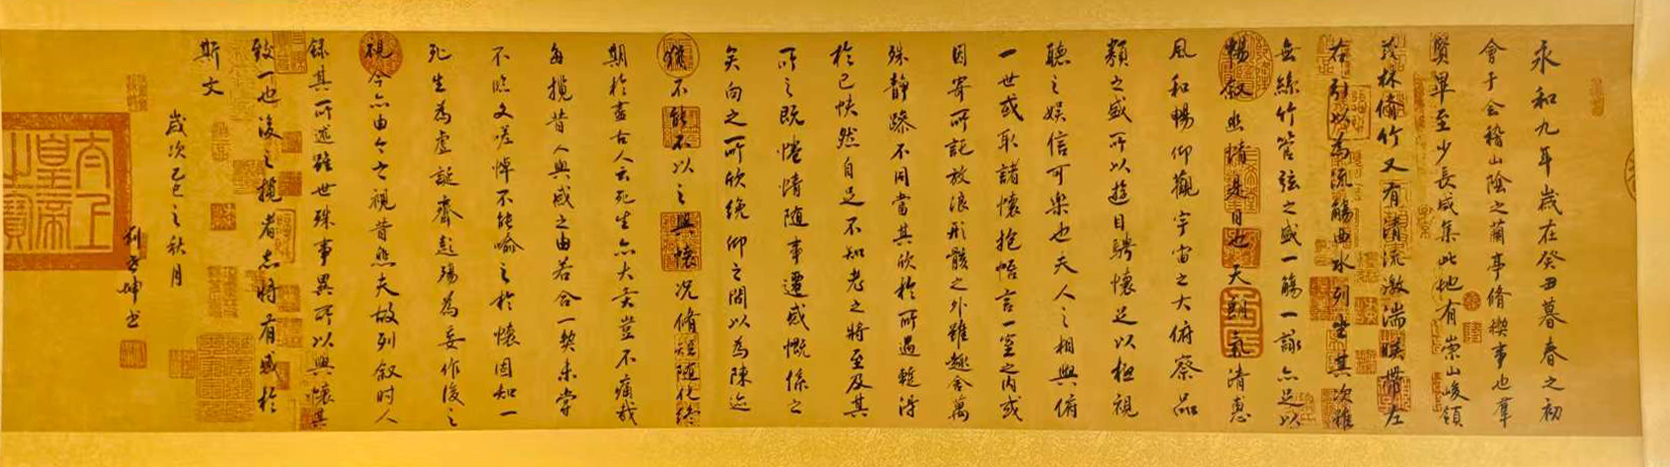 永和九年歲在癸丑暮春之初
會于會稽山陰之蘭亭脩禊事也羣
賢畢至少長咸集此地有崇山峻領
茂林脩竹又有清流激湍暎帶左
右引以為流觴曲水列坐其次雖
無絲竹管弦之盛一觴一詠亦足以
暢叙幽情是日也天朗氣清惠
風和暢仰觀宇宙之大俯察品
類之盛所以遊目騁懷足以極視
聽之娛信可樂也夫人之相與俯
一世或取諸懷抱悟言一室之內或
因寄所託放浪形骸之外雖趣舍萬
殊靜躁不同當其欣於所遇蹔得
於己怏然自足不知老之將至及其
所之既惓情随事遷感慨係之
矣向之所欣俛仰之間以為陳迹
猶不能不以之興懷况脩短随化終
期於盡古人云死生亦大矣豈不痛哉
每攬昔人興感之由若合一契未嘗
不臨文嗟悼不能喻之於懷固知一
死生為虛誕齊彭殤為妄作後之
視今亦由今之視昔悲夫故列叙時人
錄其所述雖世殊事異所以興懷其
致一也後之攬者亦將有感於
斯文
歲次乙巳之秋月
坤书
太上
皇帝
寶